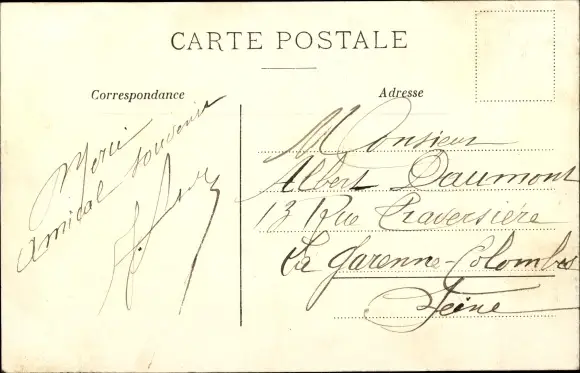 CARTE POSTALE
Correspondance
Adresse
Merci
Amical souvenir
Monsieur
Albert Daumont
13 Rue Traversière
La Garenne-Colombes
Seine